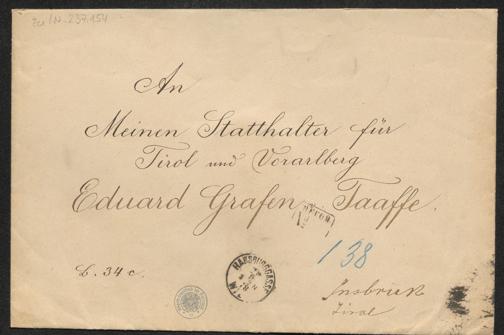 zu I.N. 237.154
An
Meinen Statthalter für
Tirol und Vorarlberg
Eduard Grafen Taaffe.
RECOM.
138
HABSBURGGASSE
WIEN
B. 34 c.
Innsbruck
Tirol